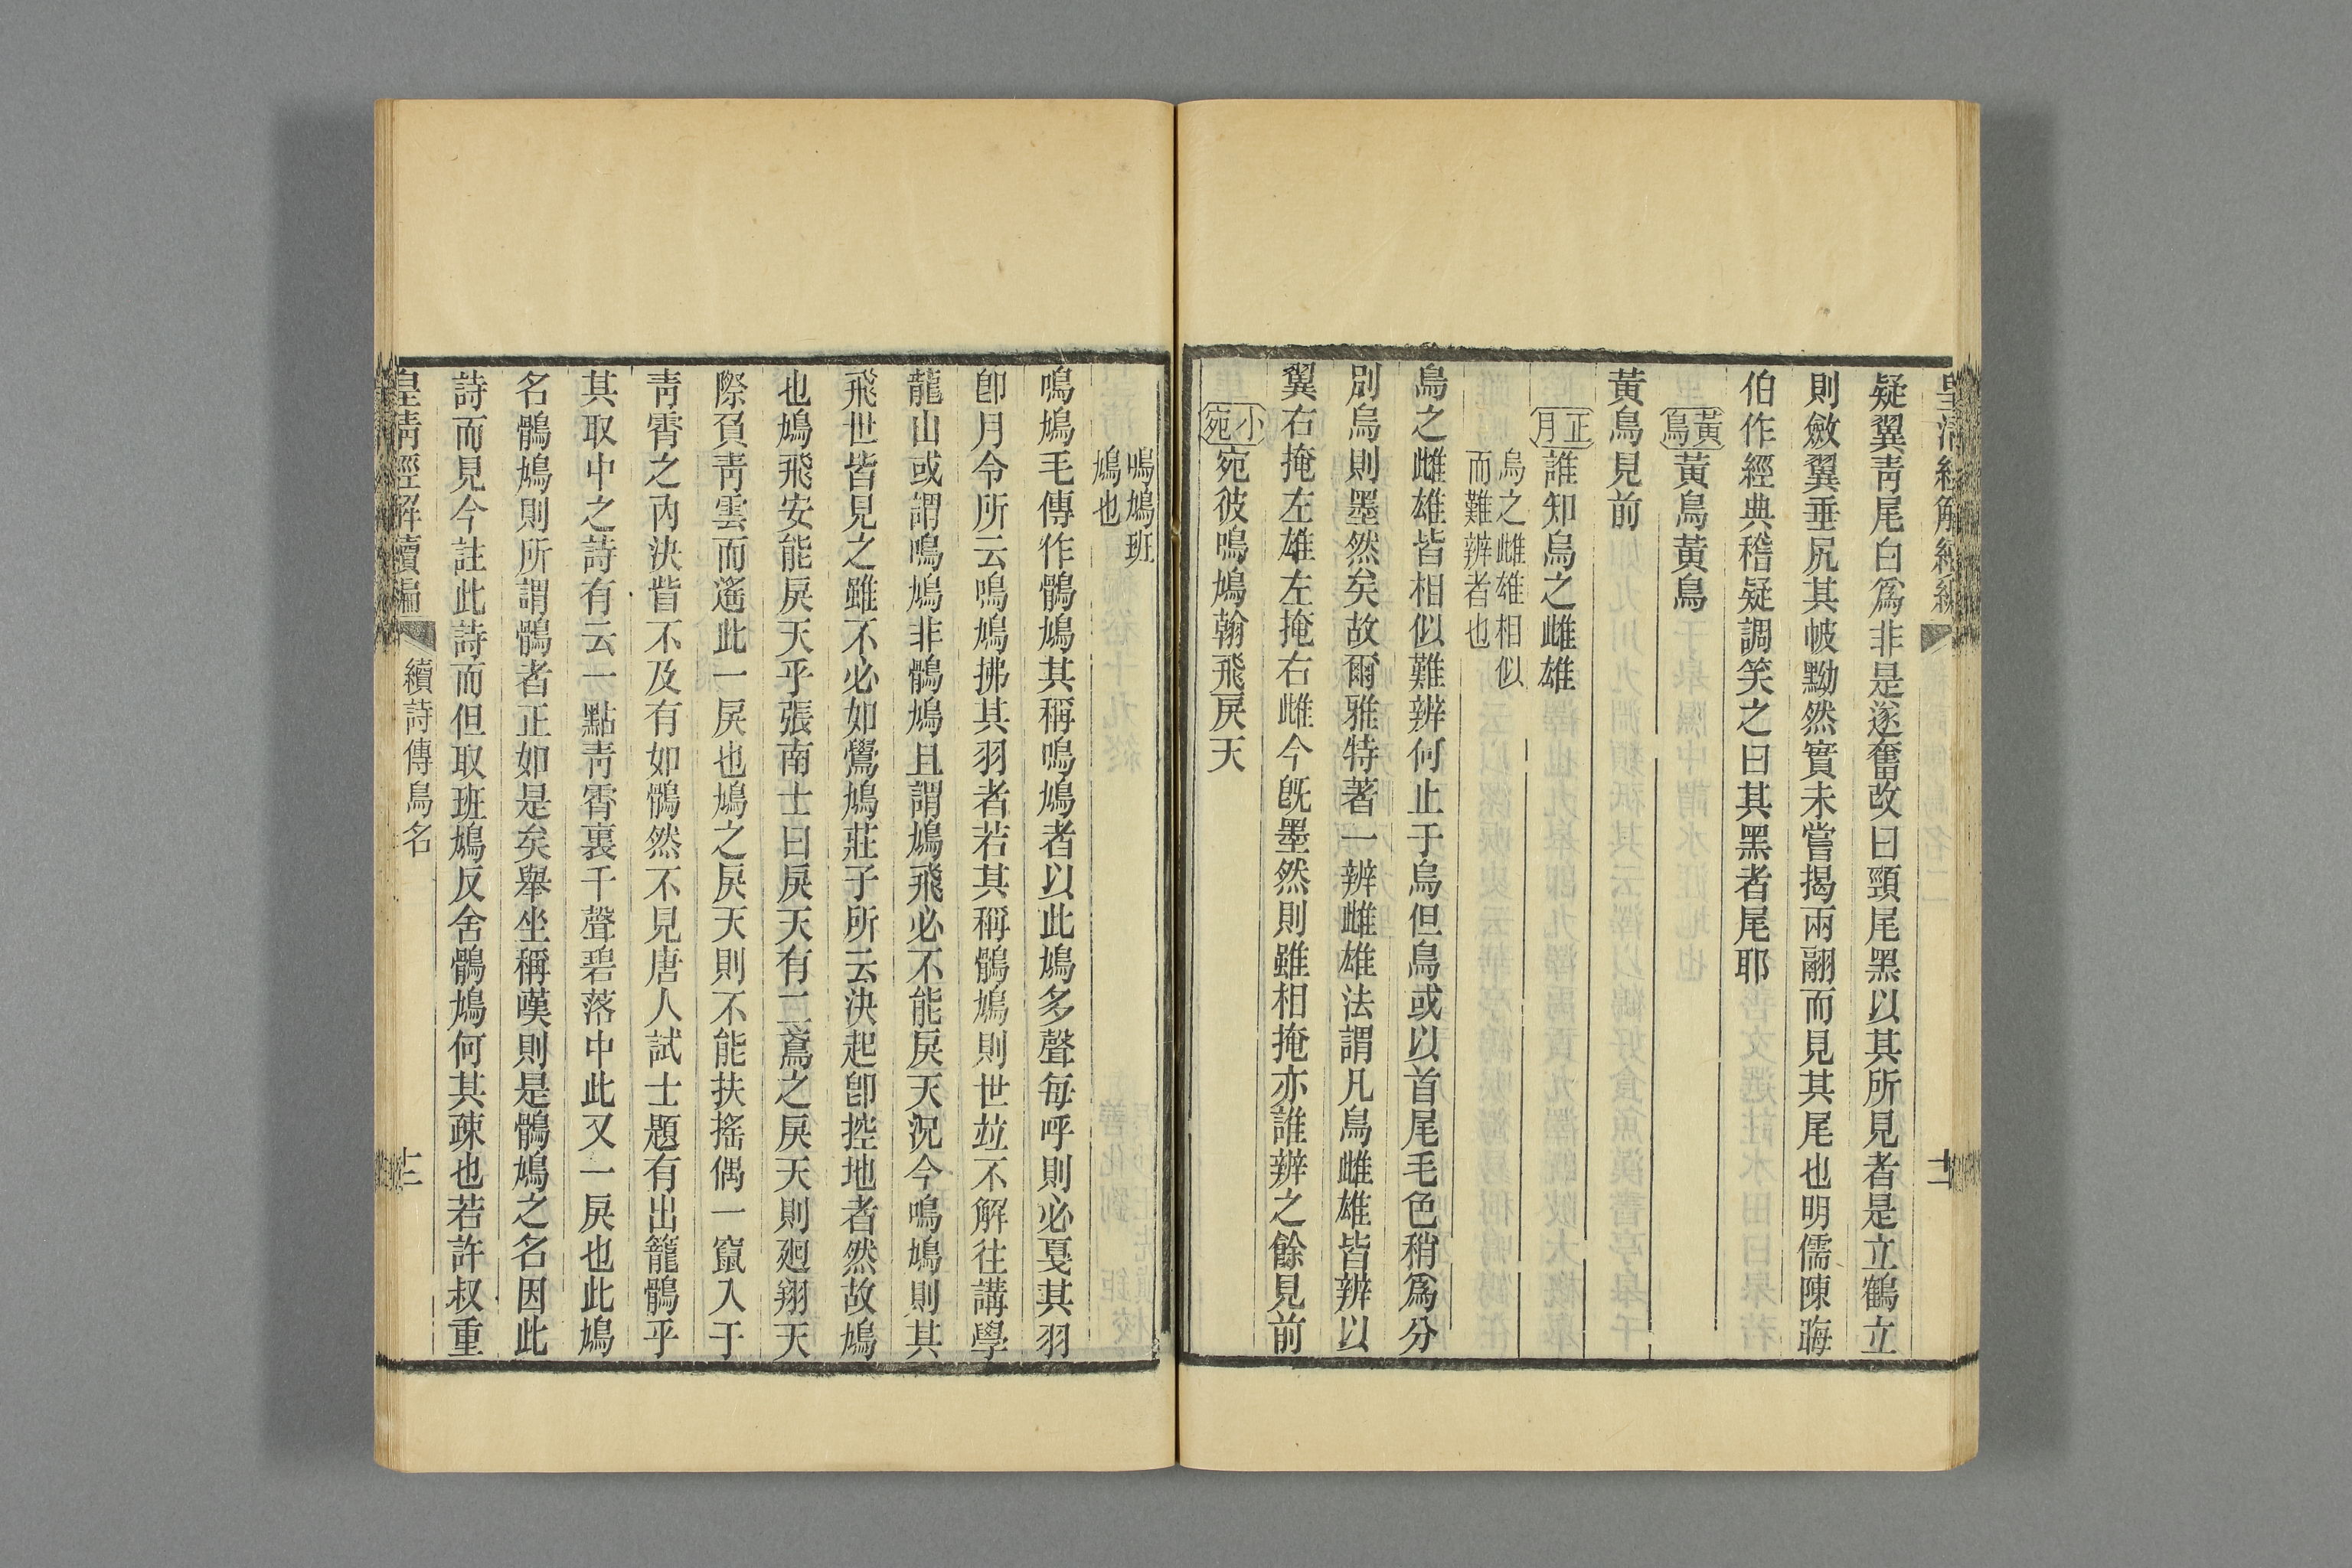 疑翼靑尾白爲非是遂奮改曰頸尾黑以其所見者是立鶴立
則斂翼垂尻其帔黝然實未嘗揭兩翮而見其尾也明儒陳晦
伯作經典稽疑調笑之曰其黑者尾耶
黃鳥 黃鳥黃鳥
黃鳥見前
正月 誰知烏之雌雄
烏之雌雄相似
而難辨者也
鳥之雌雄皆相似難辨何止于烏但鳥或以首尾毛色稍爲分
別烏則墨然矣故爾雅特著一辨雌雄法謂凡鳥雌雄皆辨以
翼右掩左雄左掩右雌今旣墨然則雖相掩亦誰辨之餘見前
小宛 宛彼鳴鳩翰飛戾天
鳴鳩班
鳩也
鳴鳩毛傳作鶻鳩其稱鳴鳩者以此鳩多聲每呼則必戛其羽
卽月令所云鳴鳩拂其羽者若其稱鶻鳩則世竝不解往講學
龍山或謂鳴鳩非鶻鳩且謂鳩飛必不能戾天況今鳴鳩則其
飛世皆見之雖不必如鷽鳩莊子所云決起卽控地者然故鳩
也鳩飛安能戾天乎張南士曰戾天有二鳶之戾天則廻翔天
際負靑雲而遙此一戾也鳩之戾天則不能扶搖偶一竄入于
靑霄之內決眥不及有如鶻然不見唐人試士題有出籠鶻乎
其取中之詩有云一點靑霄裏千聲碧落中此又一戾也此鳩
名鶻鳩則所謂鶻者正如是矣舉坐稱嘆則是鶻鳩之名因此
詩而見今註此詩而但取班鳩反舍鶻鳩何其疎也若許叔重
皇淸經解續編 續詩傳鳥名 十二